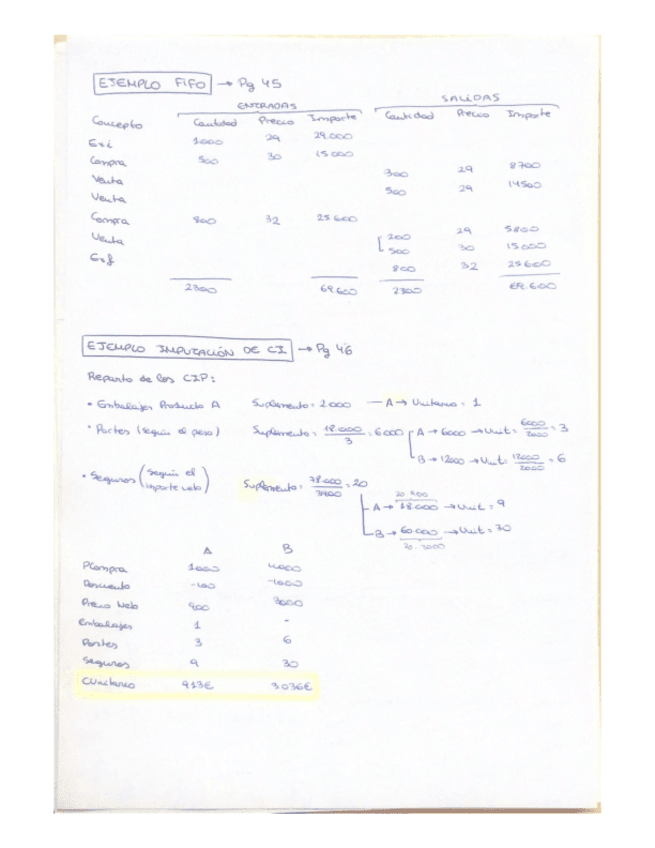 EJEMPLO FIFO → Pg 45
ENTRADAS SALIDAS
Concepto Cantidad Precio Importe Cantidad Precio Importe
Exi 1000 29 29.000
Compra 500 30 15.000
Venta 300 29 8700
Venta 500 29 14500
Compra 800 32 25.600
Venta 200 29 5800
500 30 15.000
Exf 800 32 25.600
2300 69.600 2300 69.600
EJEMPLO IMPUTACIÓN DE CI → Pg 46
Reparto de los CIP:
• Embalajes Producto A Suplemento = 2000 — A → Unitario = 1
• Portes (según el peso) Suplemento = 18.000/3 = 6000 A → 6000 → Unit = 6000/2000 = 3
B → 12000 → Unit = 12000/2000 = 6
• Seguros (según el importe neto) Suplemento = 78.000/3900 = 20
20 · 900
A → 18.000 → Unit = 9
B → 60.000 → Unit = 30
20 · 3000
A B
PCompra 1000 4000
Descuento -100 -1000
Precio Neto 900 3000
Embalajes 1 -
Portes 3 6
Seguros 9 30
CUnitario 913€ 3.036€